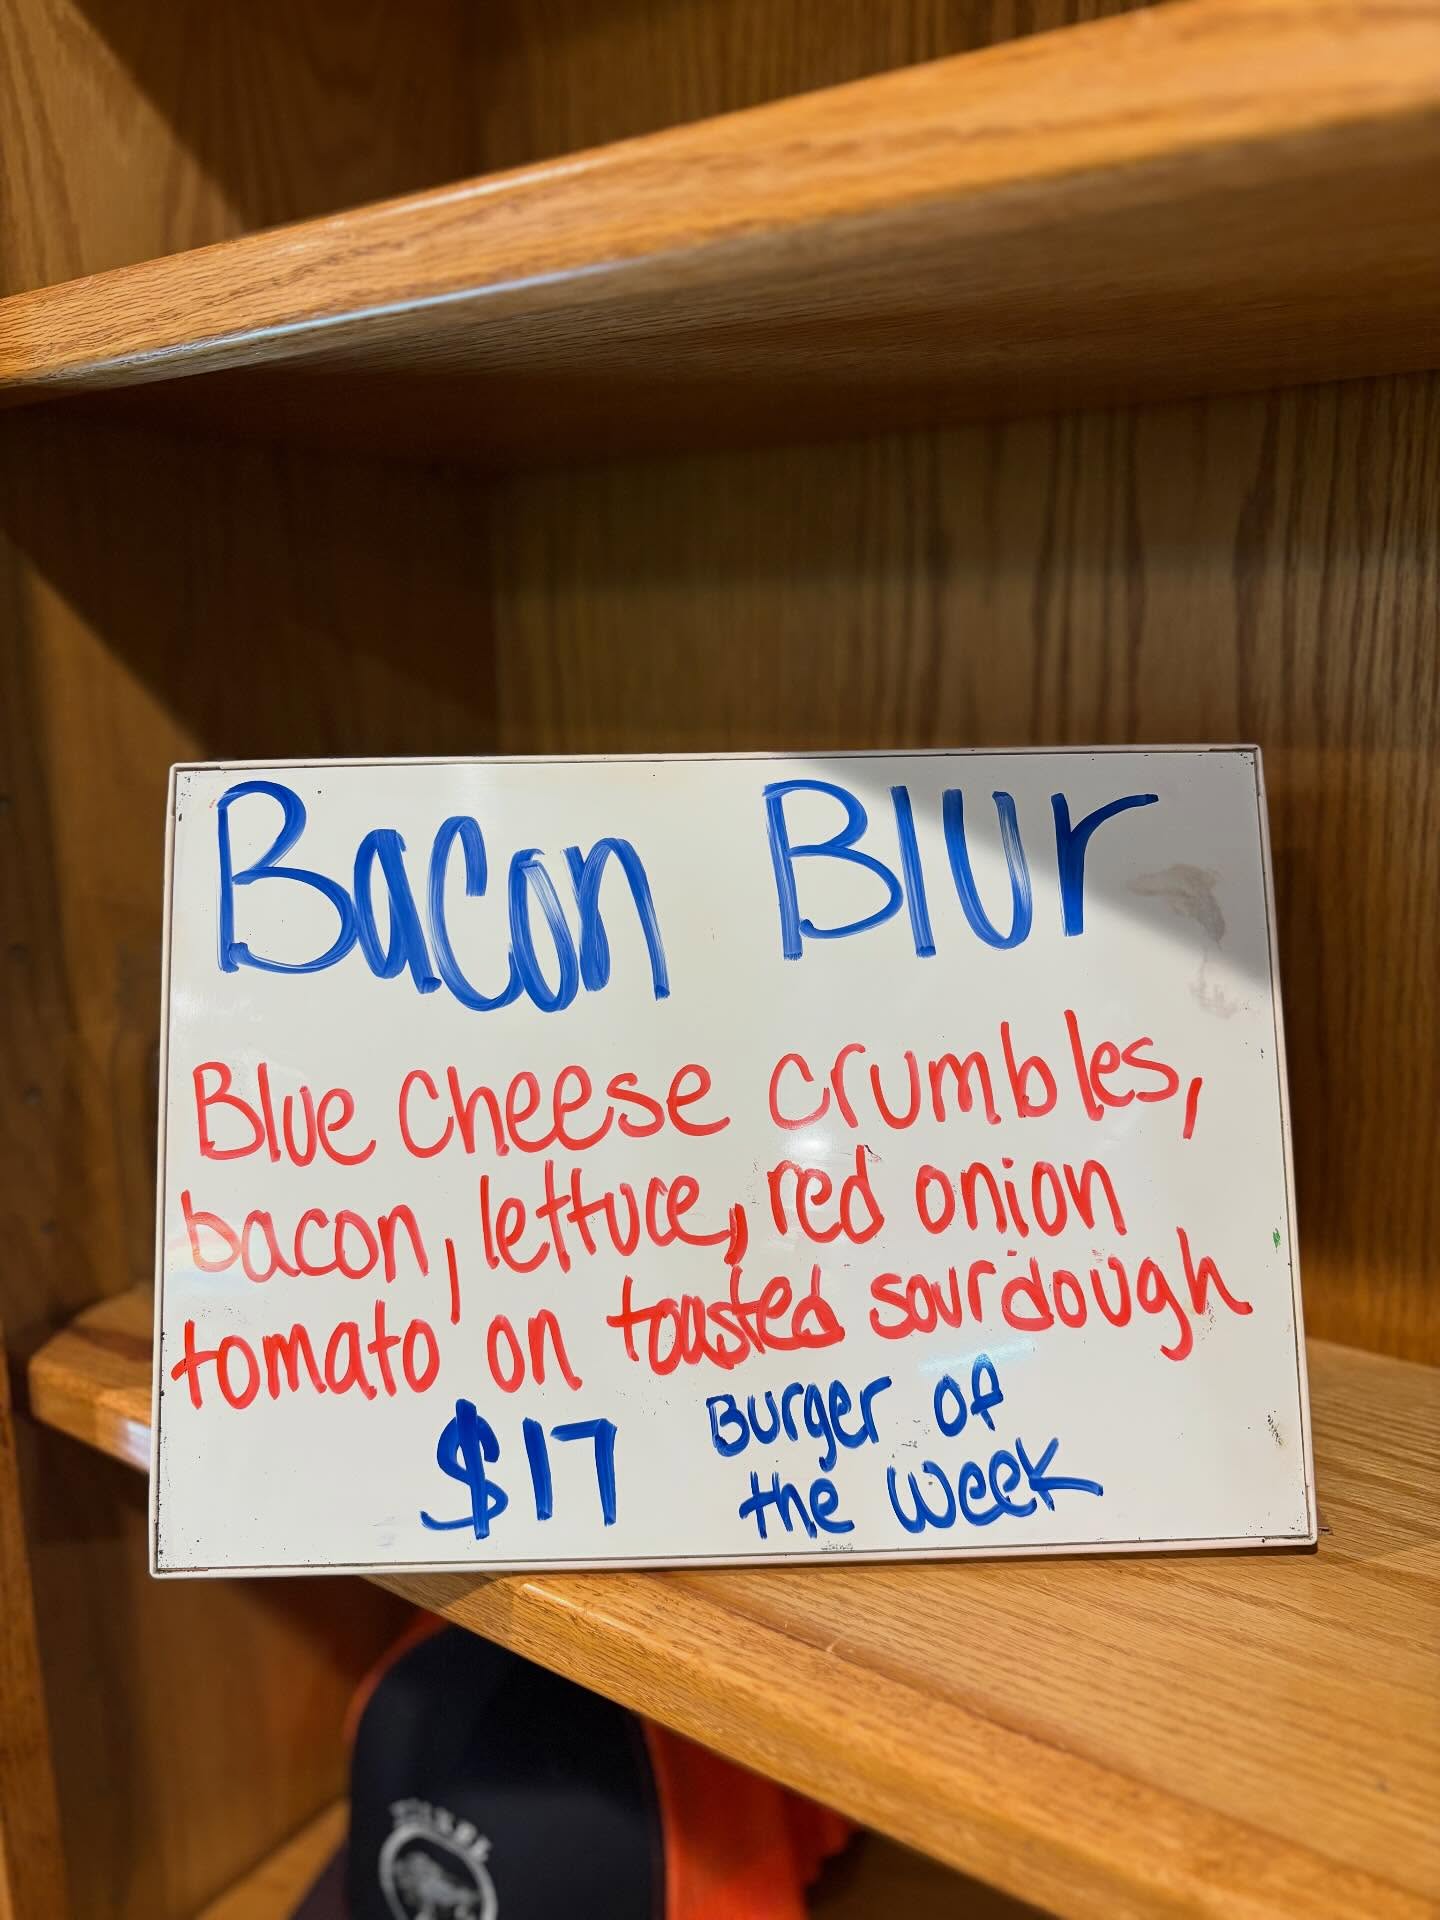 Bacon Blur
Blue Cheese crumbles,
bacon, lettuce, red onion
tomato on toasted sourdough
$17 Burger of
the week